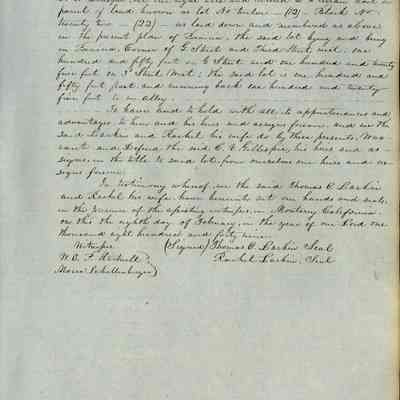 parcel of land known as lot No twelve – (12) – Block No
twenty two – (22) – as laid down and numbered as above
in the present plan of Benicia, the said lot lying and being
in Benicia, Corner of G Street and Third Street, west. one
hundred and fifty feet on G Street and one hundred and twenty
five feet on 3d Street West; the said lot is one hundred and
fifty feet front and running back one hundred and twenty-
five feet to an alley.
To have and to hold with all its appurtenances and
advantages to him and his heirs and assigns forever. and we the
said Larkin and Rachel his wife do by these presents, War-
rant and Defend the said C. V. Gillespie, his heirs and as-
signs, in the title to said lot from ourselves our heirs and as-
signs forever.
In testimony whereof, we the said Thomas O. Larkin
and Rachel his wife, have hereunto set our hands and seals,
in the presence of the attesting witnesses, in Monterey California.
on this the eighth day of February, in the year of our Lord one
thousand eight hundred and forty nine.
Witnesses (Signed) Thomas O. Larkin Seal
W. P. F. Rachel Larkin, Seal
Maria Schallenberger